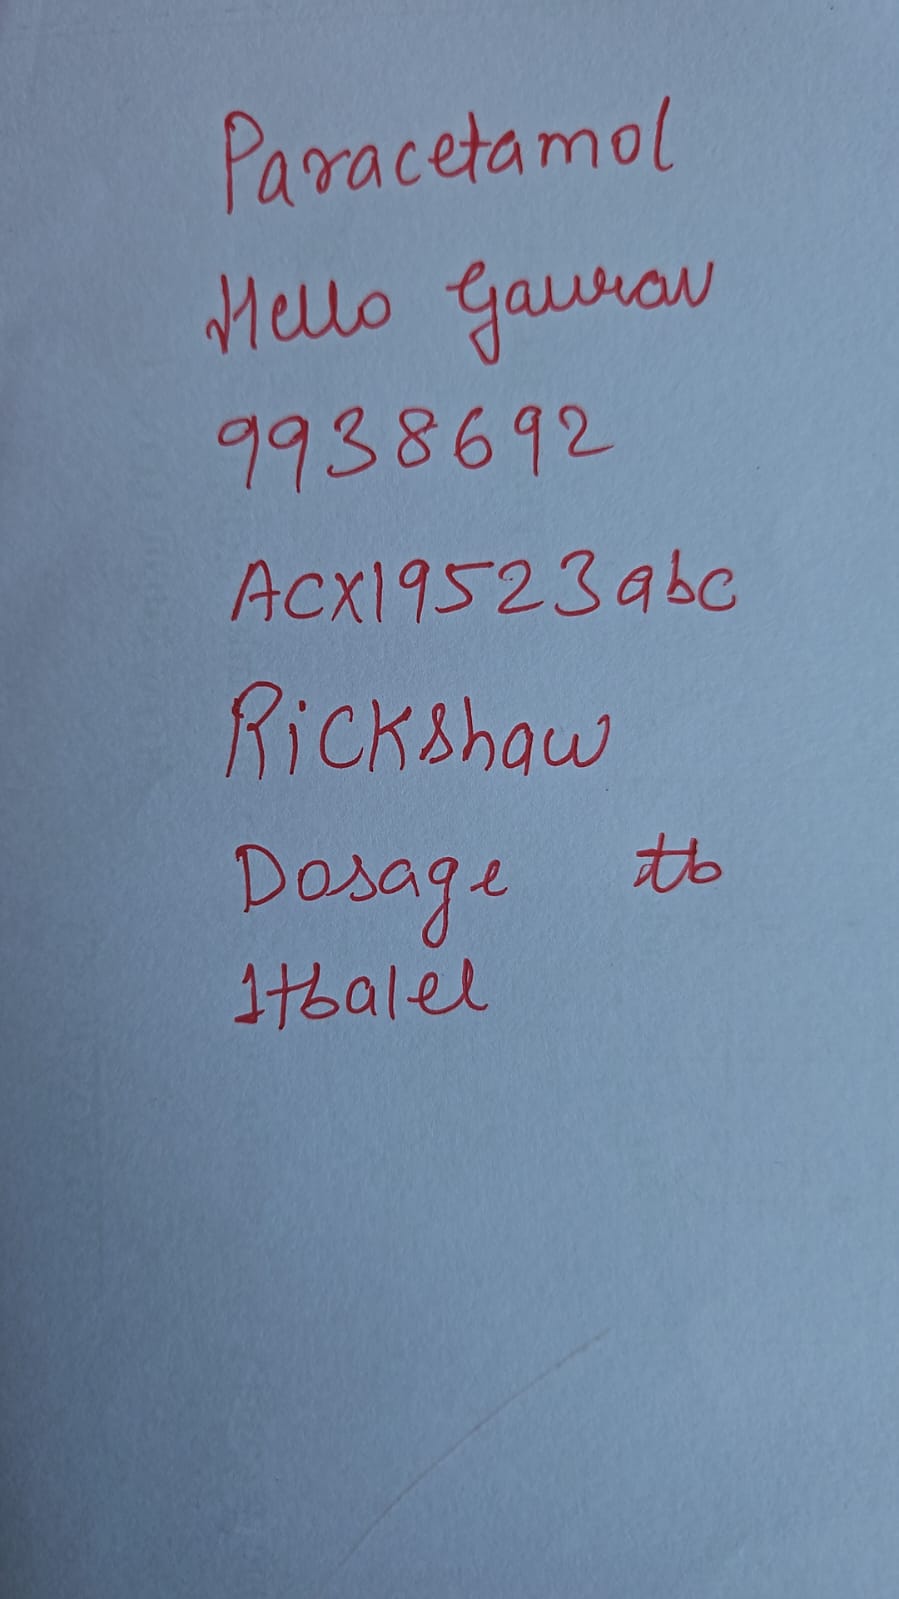 Paracetamol
Hello Gaurav
9938692
ACX19523abc
Rickshaw
Dosage tb
1tbalel